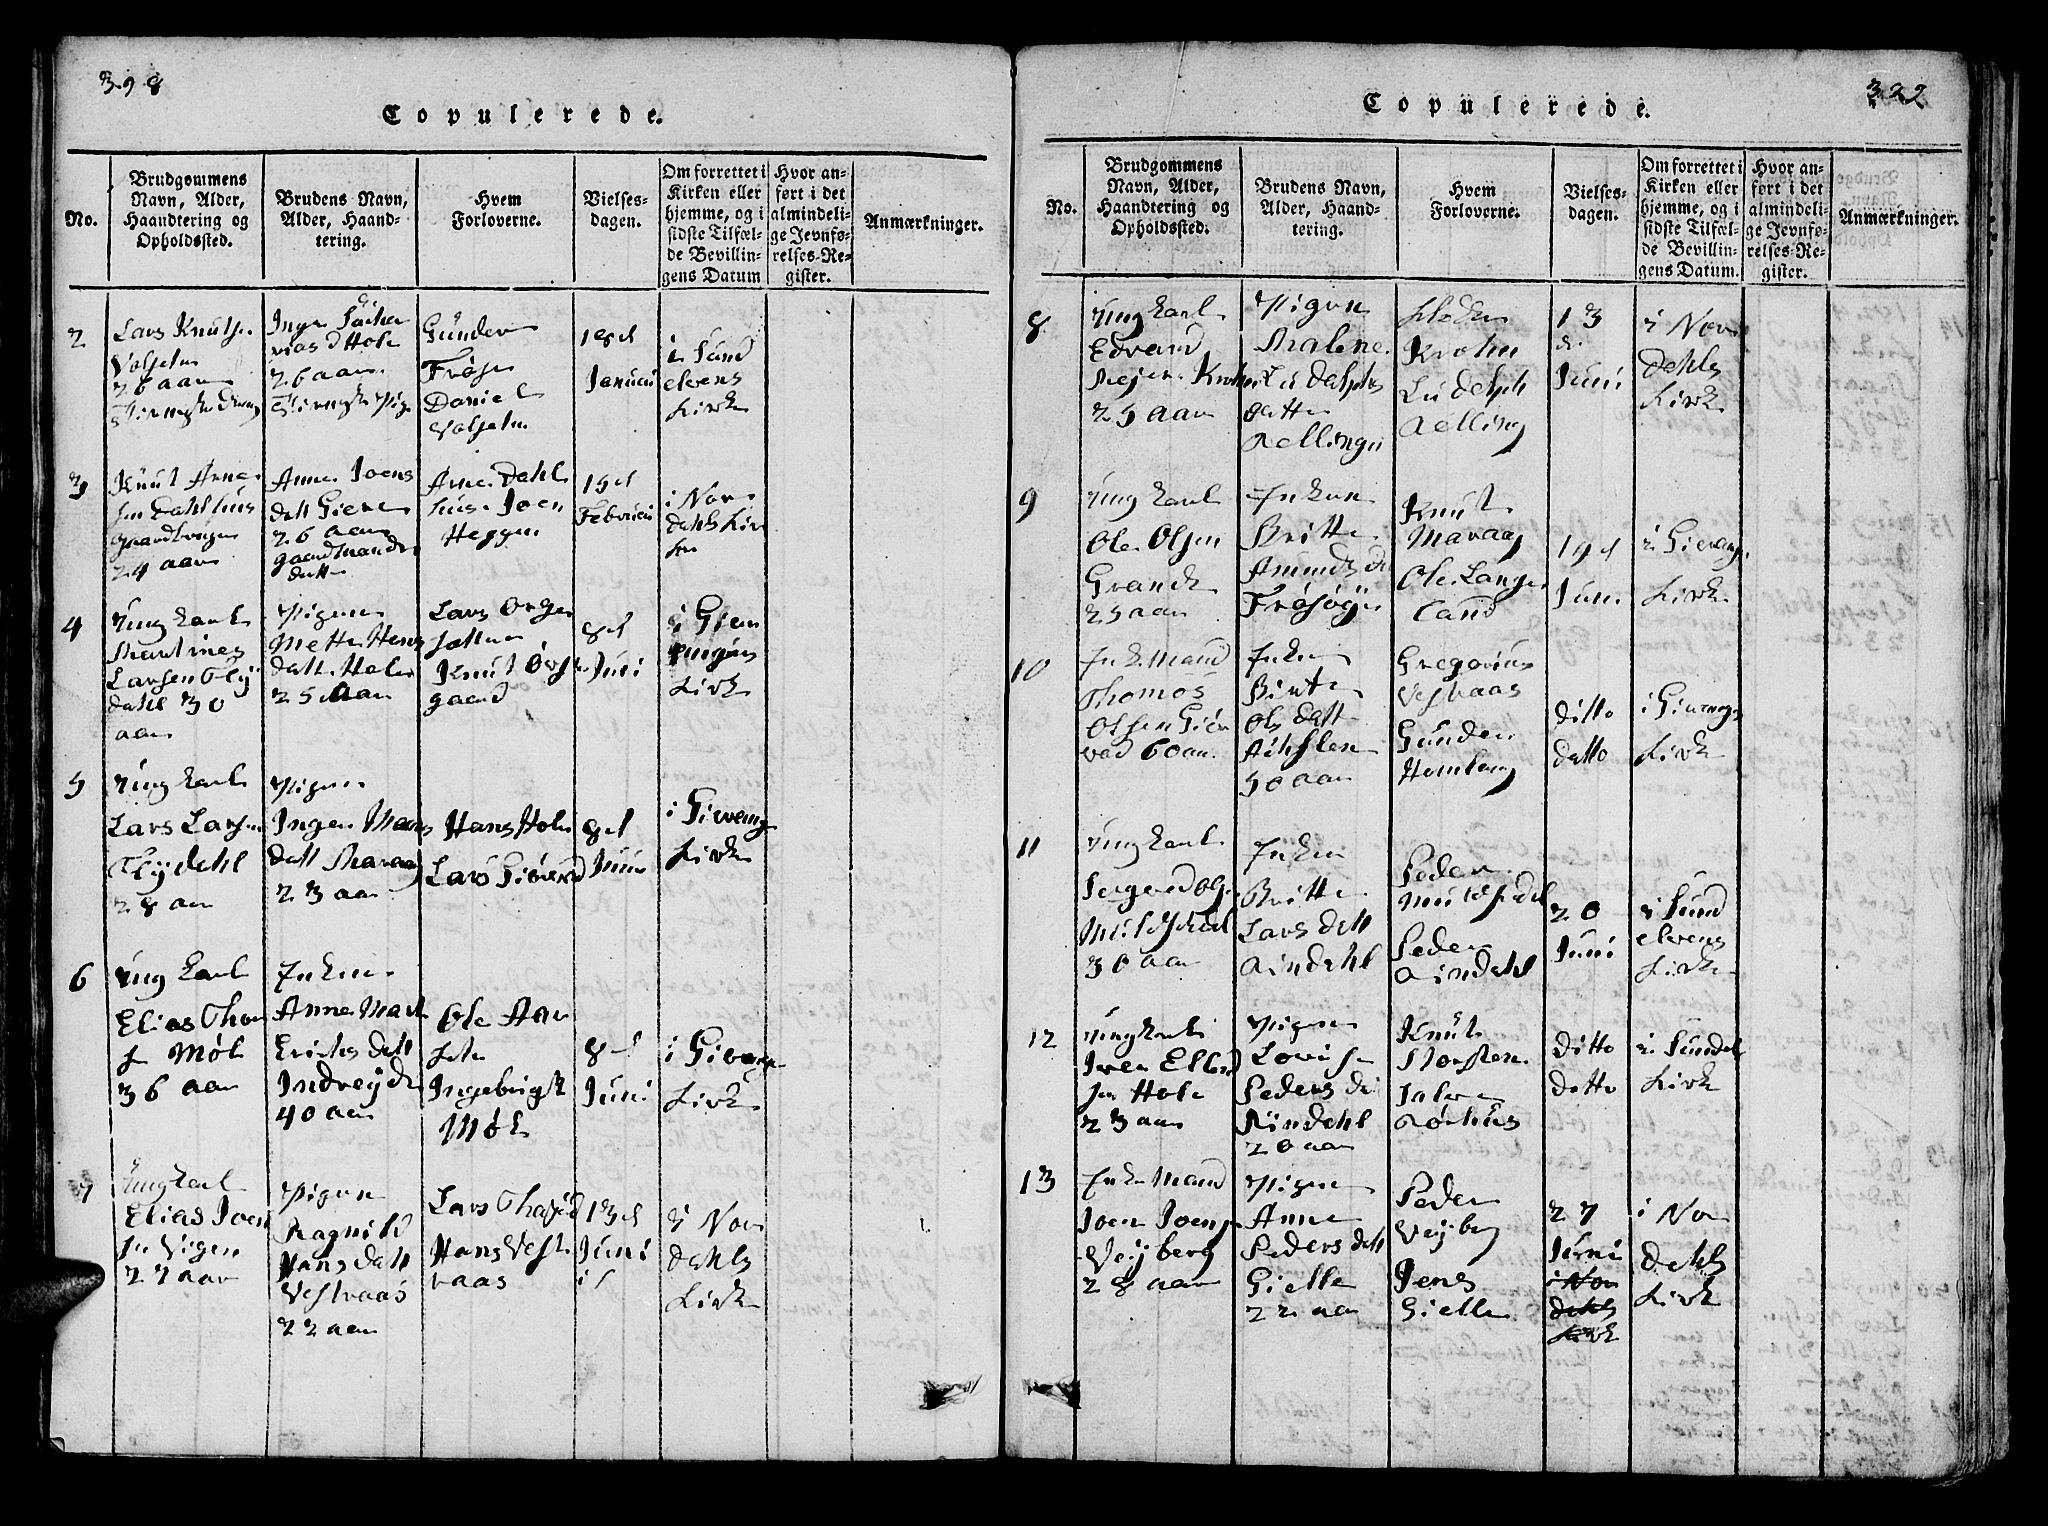 398
Copulerede.
No.
Brudgommens
Navn, Alder,
Haandtering og
Opholdssted.
Brudens Navn,
Alder, Haand-
tering.
Hvem
Forloverne.
Vielses-
dagen.
Om forrettet i
Kirken eller
hjemme, og i
sidste Tilfæl-
de Bevillin-
gens Datum
Hvor an-
ført i det
almindeli-
ge Jevnfø-
relses-Re-
gister.
Anmærkninger.
2
Lars Knuts
26 aar
Inger
Hole
26 aar
Gunder
Frøse
Daniel
18d
Januari
i Sund
elvens
Kirke
3
Knut Arne
sen Dahlhus
24 aar
Anne Joens
datt Giere
26 aar
gaardmands
datter
Arne Dahl
hus Joen
Heggen
19d
Februari
i Nor
dahls Kir
ke
4
Ung Karl
Martines
Larsen Flÿ
dahl 30
aar
Pigen
Mette Hans
datt Hole
25 Aar
Lars Ørge
Knut Ørge
gaard
8d
Juni
i Gier
Kirke
5
Ung Karl
Lars Larsen
Flÿdahl
28 aar
Pigen
Inger Mans
datt Maraag
23 aar
Hans Hole
Lars
8d
Juni
i Gierang
Kirke
6
Ung Karl
Elias Thor
se Møl
36 aar
Enken
Anne Mart
Erichs datt
Indreÿde
40 aar
Ole Aar
sete
Ingebrigt
Møll
8d
Juni
i Gierang
Kirke
7
Ung Karl
Elias Joen
se Vigen
27 aar
Pigen
Ragnild
Hans datt
Vestraas
22 aar
Lars
Hans Vest
raas
13d
Juni
i Nor
dahls
Kirke
322
Copulerede.
No.
Brudgommens
Navn, Alder,
Haandtering og
Opholdssted.
Brudens Navn,
Alder, Haand-
tering.
Hvem
Forloverne.
Vielses-
dagen.
Om forrettet i
Kirken eller
hjemme, og i
sidste Tilfæl-
de Bevillin-
gens Datum.
Hvor an-
ført i det
almindeli-
ge Jevnfø-
relses-Re-
gister.
Anmærkninger.
8
Ung Karl
Edvard
Mejer Krohn
25 aar
Pigen
Malene
Ludolphs
datter
Rellinge
Krohn
Ludolph
Relling
13
d
Juni
i Nor
dahls
Kirke
9
Ung Karl
Ole Olsen
Grande
25 aar
Enken
Britte
Amunds da
Frøsøge
Knut
Maraag
Ole Lange
land
19d
Juni
i Gierang
Kirke
10
Enke Mand
Thomas
Olsen
60 aar
Enken
Birte
Ols datt
50 aar
Gregorius
Vestraas
Gunder
Homlung
ditto
datto
i Gierang
Kirke
11
Ung Karl
Muldsædal
30 aar
Enken
Britte
Lars datt
Rindahl
Peder
Muldsædal
Peder
Rindahl
20
Juni
i Sund
elvens
Kirke
12
Ung Karl
Iver Elling
sen Hole
23 aar
Pigen
Lovise
Peders da
Rindahl
20 aar
Knut
Norsten
Rørhus
Ditto
datto
i Sundel
Kirke
13
Enke Mand
Joen Joens
Veÿberg
28 aar
Pigen
Anne
Peders datt
Gielle
22 aar
Peder
Veÿberg
Jens
Gielle
27
Juni
i Nor
dahls
Kirk
i Nor
dahls
Kirk